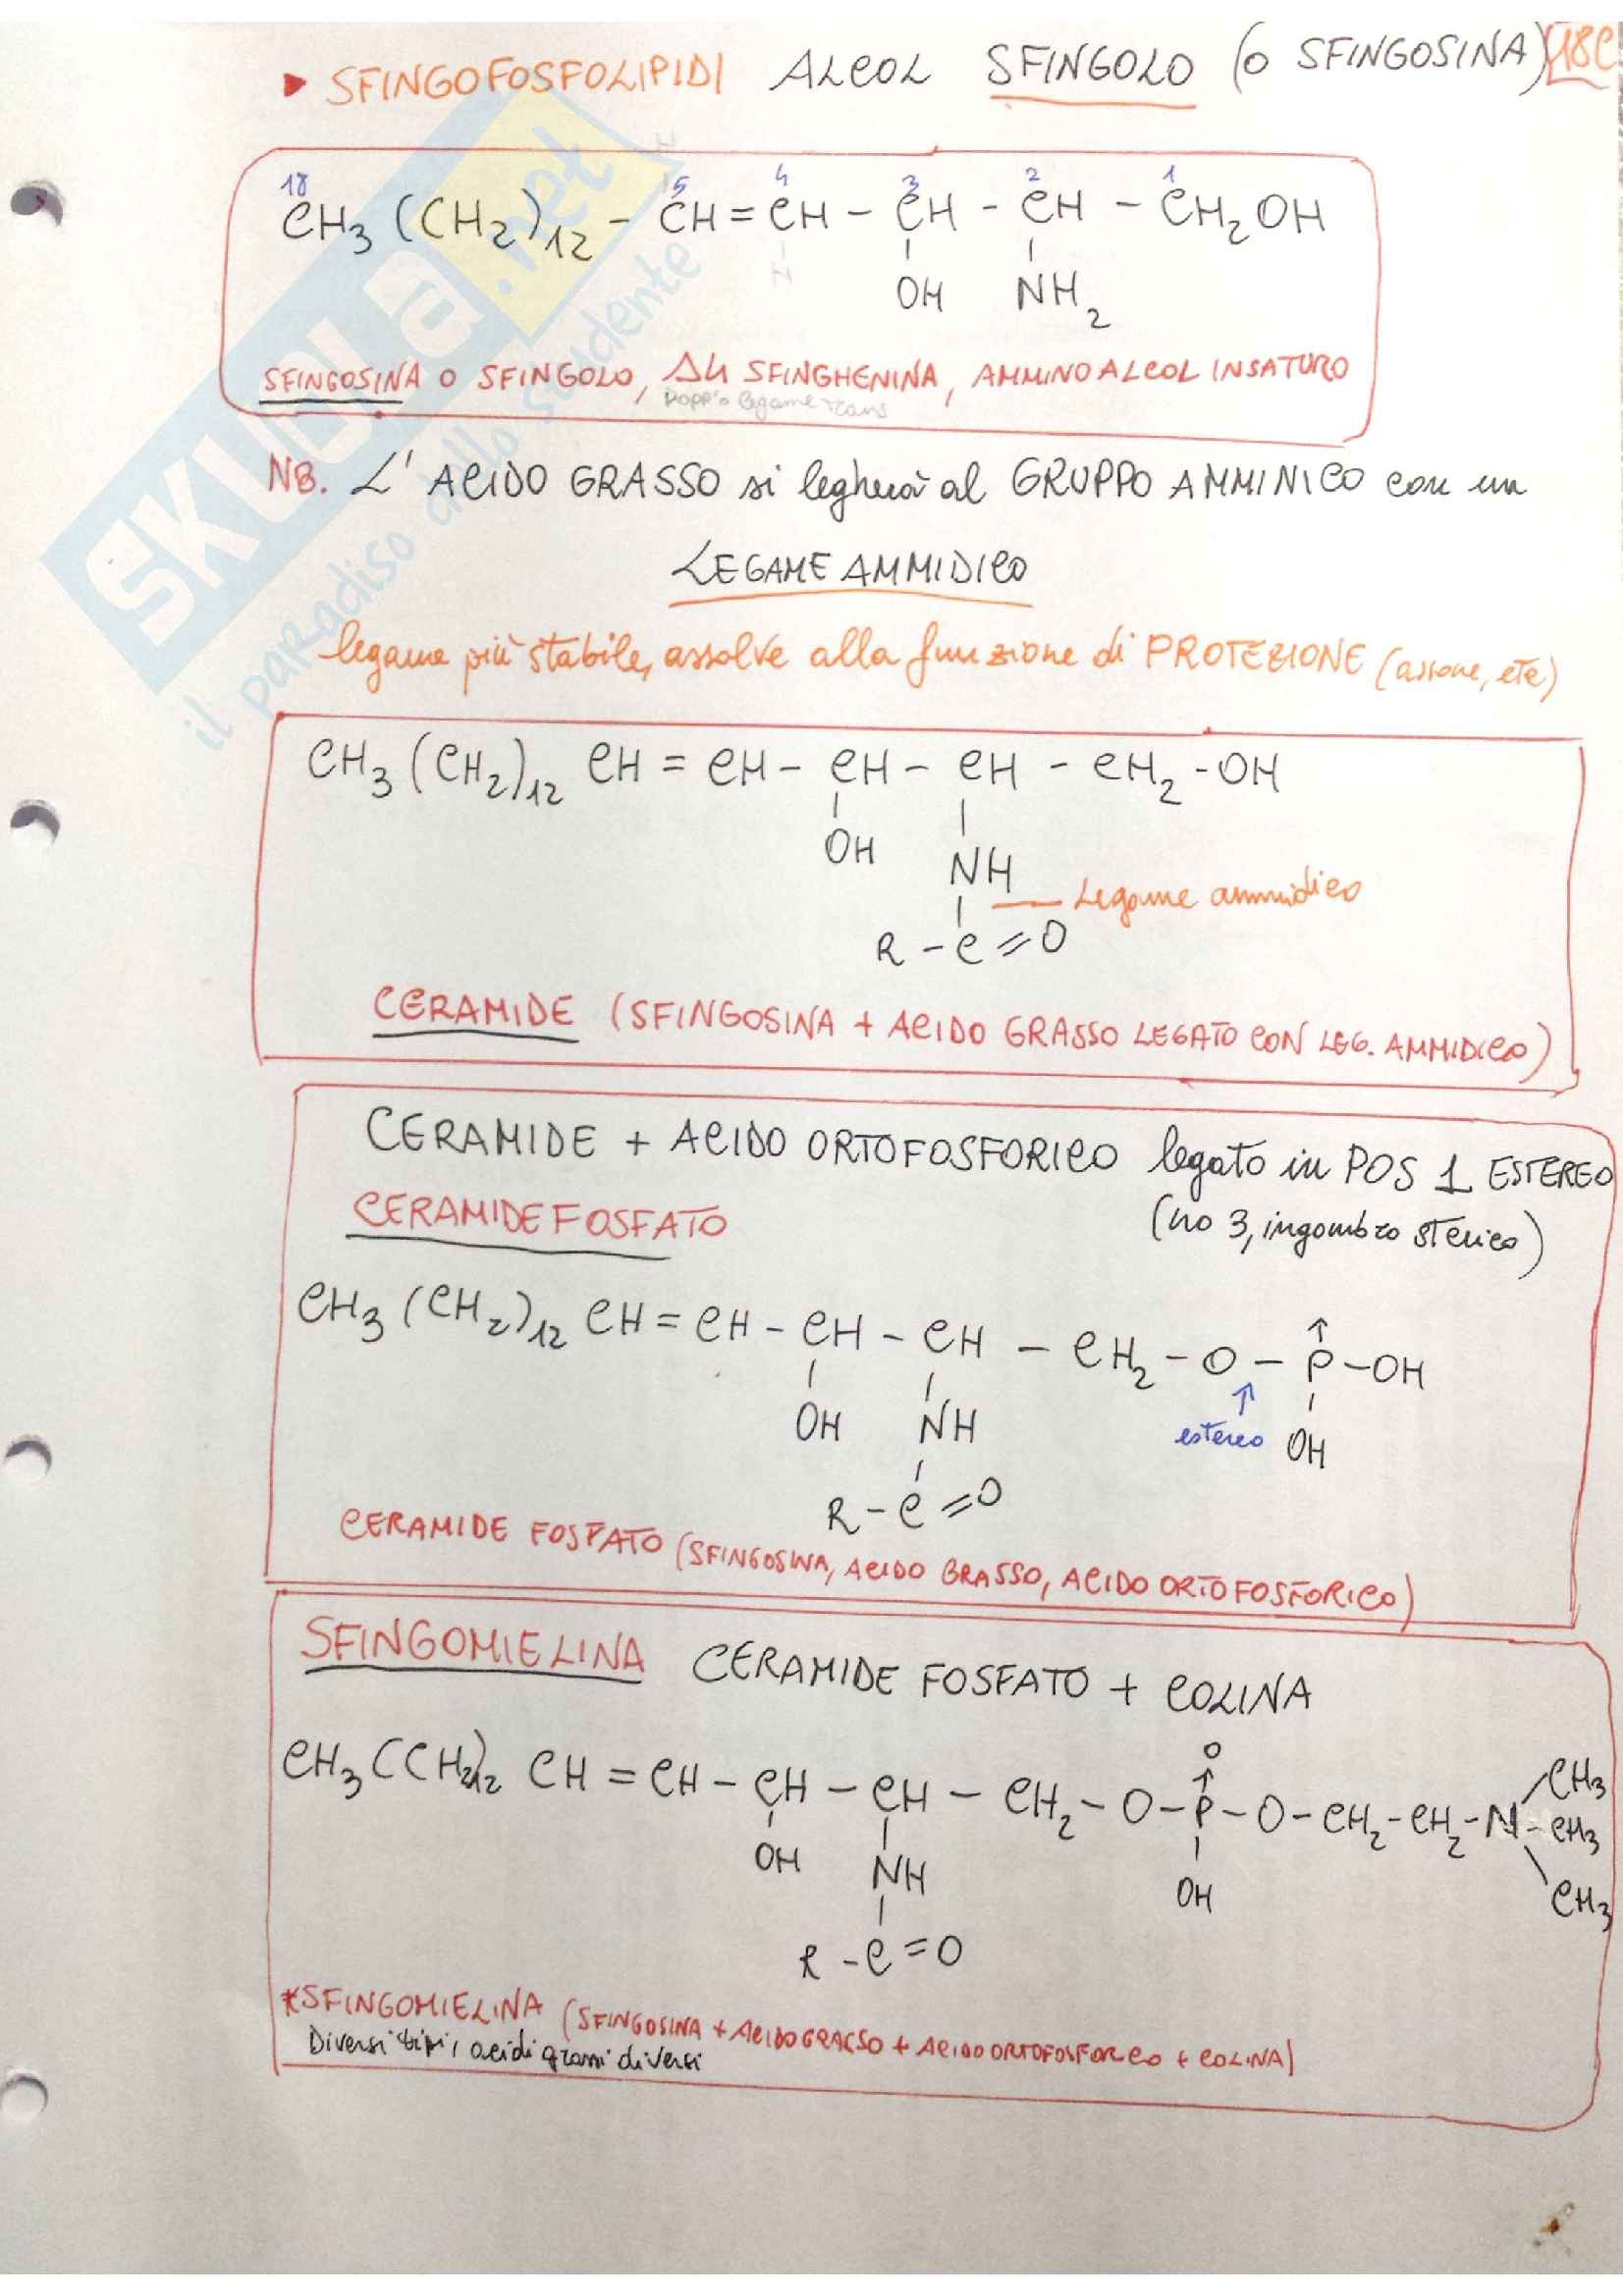 ▶ SFINGOFOSFOLIPIDI ALCOL SFINGOLO (O SFINGOSINA) 18C
18 5 4 3 2 1
CH3 (CH2)12 - CH = CH - CH - CH - CH2OH
OH NH2
SFINGOSINA O SFINGOLO, Δ4 SFINGHENINA, AMMINO ALCOL INSATURO
Doppio legame trans
NB. L'ACIDO GRASSO si legherà al GRUPPO AMMINICO con un
LEGAME AMMIDICO
legame più stabile, assolve alla funzione di PROTEZIONE (assone, etc)
CH3 (CH2)12 CH = CH - CH - CH - CH2 - OH
OH NH
Legame ammidico
R - C = O
CERAMIDE (SFINGOSINA + ACIDO GRASSO LEGATO CON LEG. AMMIDICO)
CERAMIDE + ACIDO ORTOFOSFORICO legato in POS 1 ESTEREO
CERAMIDE FOSFATO (no 3, ingombro sterico)
CH3 (CH2)12 CH = CH - CH - CH - CH2 - O - P - OH
↑
OH NH estereo OH
R - C = O
CERAMIDE FOSFATO (SFINGOSINA, ACIDO GRASSO, ACIDO ORTOFOSFORICO)
SFINGOMIELINA CERAMIDE FOSFATO + COLINA
O CH3
CH3 (CH2)12 CH = CH - CH - CH - CH2 - O - P - O - CH2 - CH2 - N - CH3
OH NH OH CH3
R - C = O
*SFINGOMIELINA (SFINGOSINA + ACIDO GRASSO + ACIDO ORTOFOSFORICO + COLINA)
Diversi tipi, acidi grassi diversi
SKUOLA.net
il paradiso dello studente